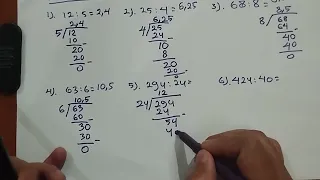 1). 12 : 5 = 2,4
2,4
5 12
10 -
20
20 -
0
2). 25 : 4 = 6,25
6,25
4 25
24 -
10
8 -
20
20 -
0
3). 68 : 8 =
8,5
8 68
64 -
40
40 -
0
4). 63 : 6 = 10,5
10,5
6 63
60 -
30
30 -
0
5). 294 : 24 =
12
24 294
24 -
54
4
6). 424 : 40 =